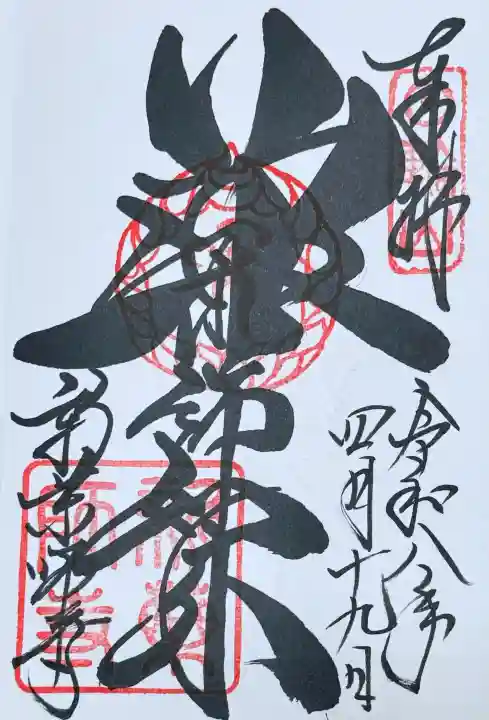 奉拝
令和八年
四月十九日
薬師如来
新薬師寺